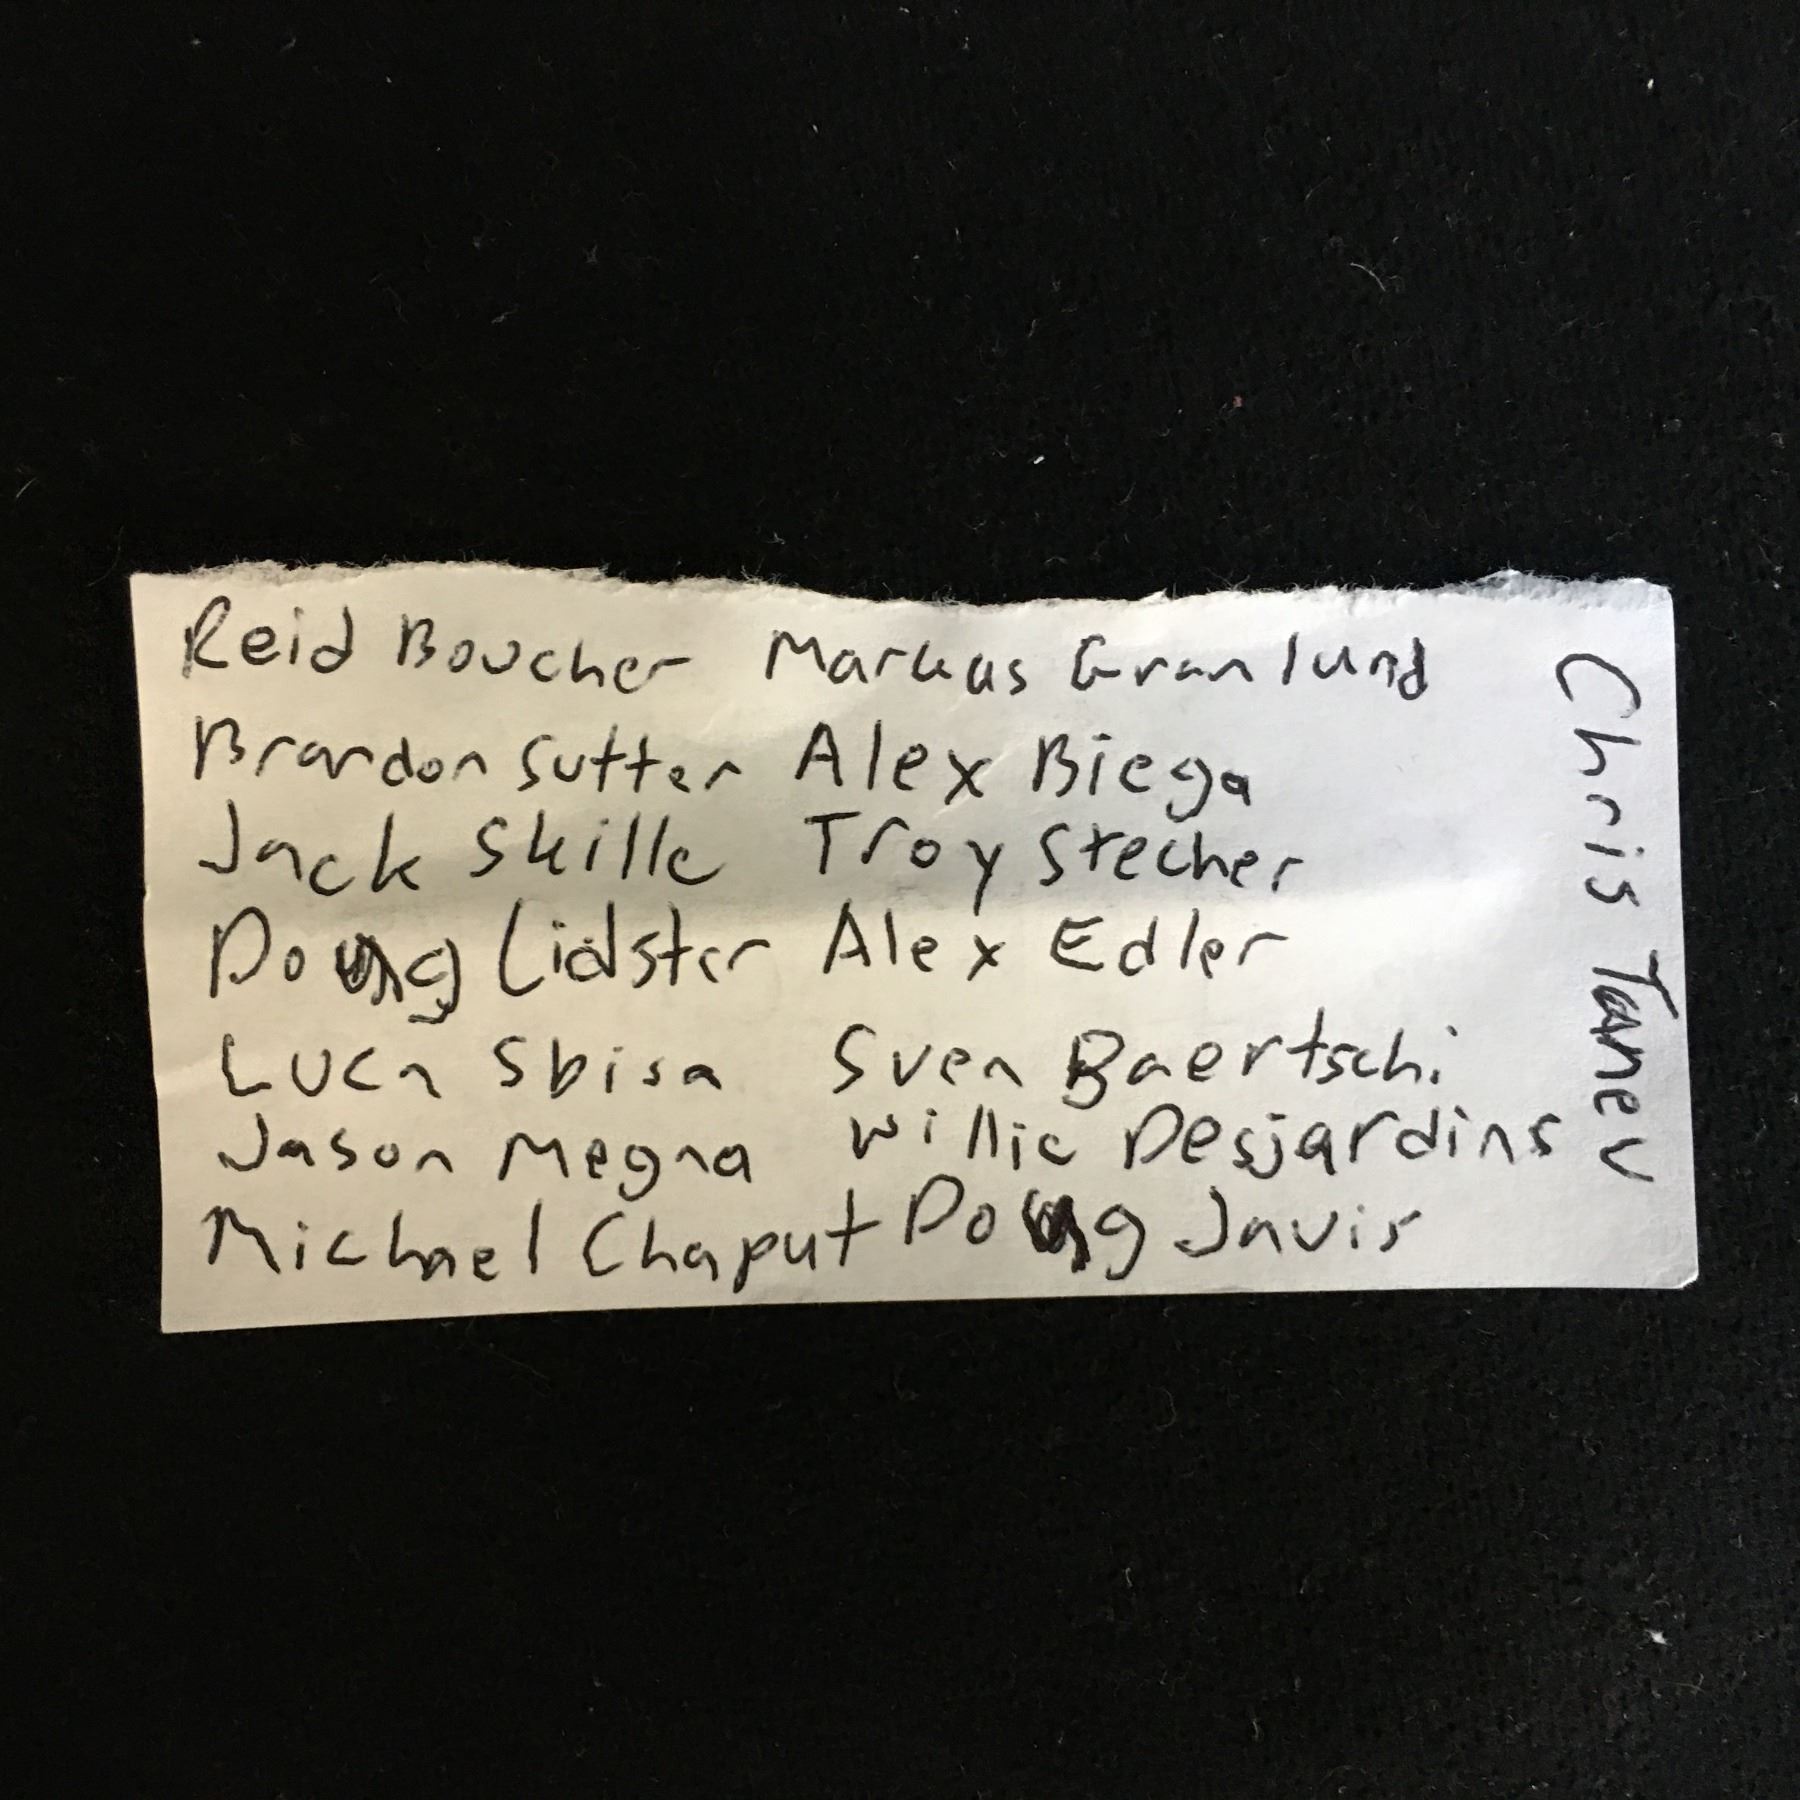 Reid Boucher Markus Granlund
Brandon Sutter Alex Biega
Jack Skille Troy Stecher
Doug Lidster Alex Edler
Luca Sbisa Sven Baertschi
Jason Megna Willie Desjardins
Michael Chaput Doug Javis
Chris Tanev